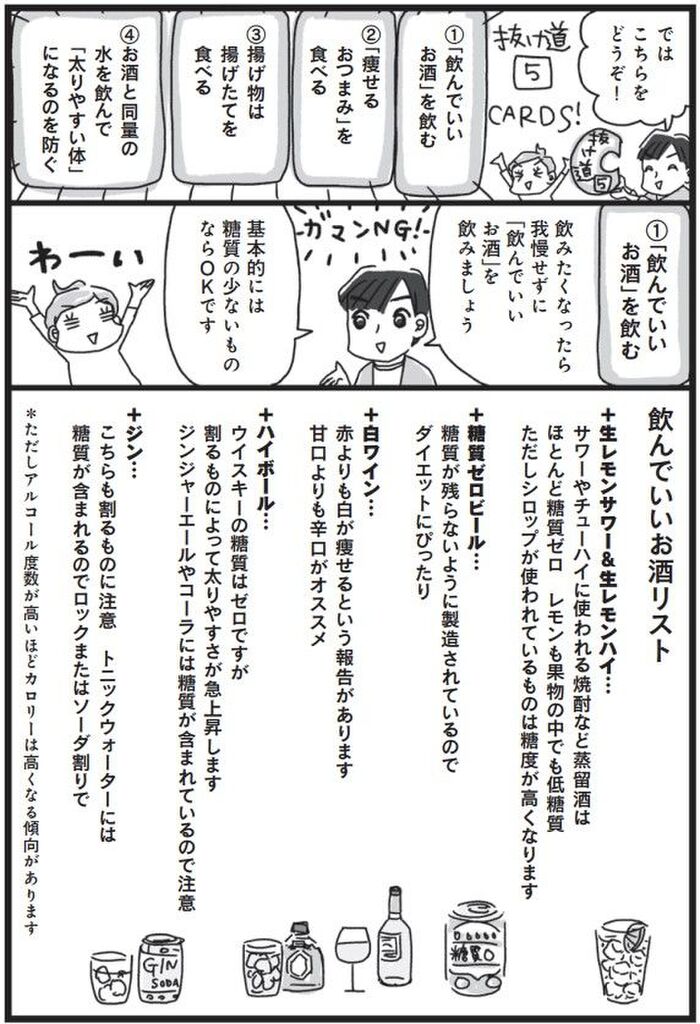 では
こちらを
どうぞ!
抜け道
5
CARDS!
抜け道
5
①「飲んでいい
お酒」を飲む
②「痩せる
おつまみ」を
食べる
③揚げ物は
揚げたてを
食べる
④お酒と同量の
水を飲んで
「太りやすい体」
になるのを防ぐ
①「飲んでいい
お酒」を飲む
飲みたくなったら
我慢せずに
「飲んでいい
お酒」を
飲みましょう
ガマンNG!
基本的には
糖質の少ないもの
ならOKです
わーい
飲んでいいお酒リスト
+生レモンサワー&生レモンハイ…
サワーやチューハイに使われる焼酎など蒸留酒は
ほとんど糖質ゼロ レモンも果物の中でも低糖質
ただしシロップが使われているものは糖度が高くなります
+糖質ゼロビール…
糖質が残らないように製造されているので
ダイエットにぴったり
+白ワイン…
赤よりも白が痩せるという報告があります
甘口よりも辛口がオススメ
+ハイボール…
ウイスキーの糖質はゼロですが
割るものによって太りやすさが急上昇します
ジンジャーエールやコーラには糖質が含まれているので注意
+ジン…
こちらも割るものに注意 トニックウォーターには
糖質が含まれるのでロックまたはソーダ割りで
*ただしアルコール度数が高いほどカロリーは高くなる傾向があります
糖質0
GIN
SODA